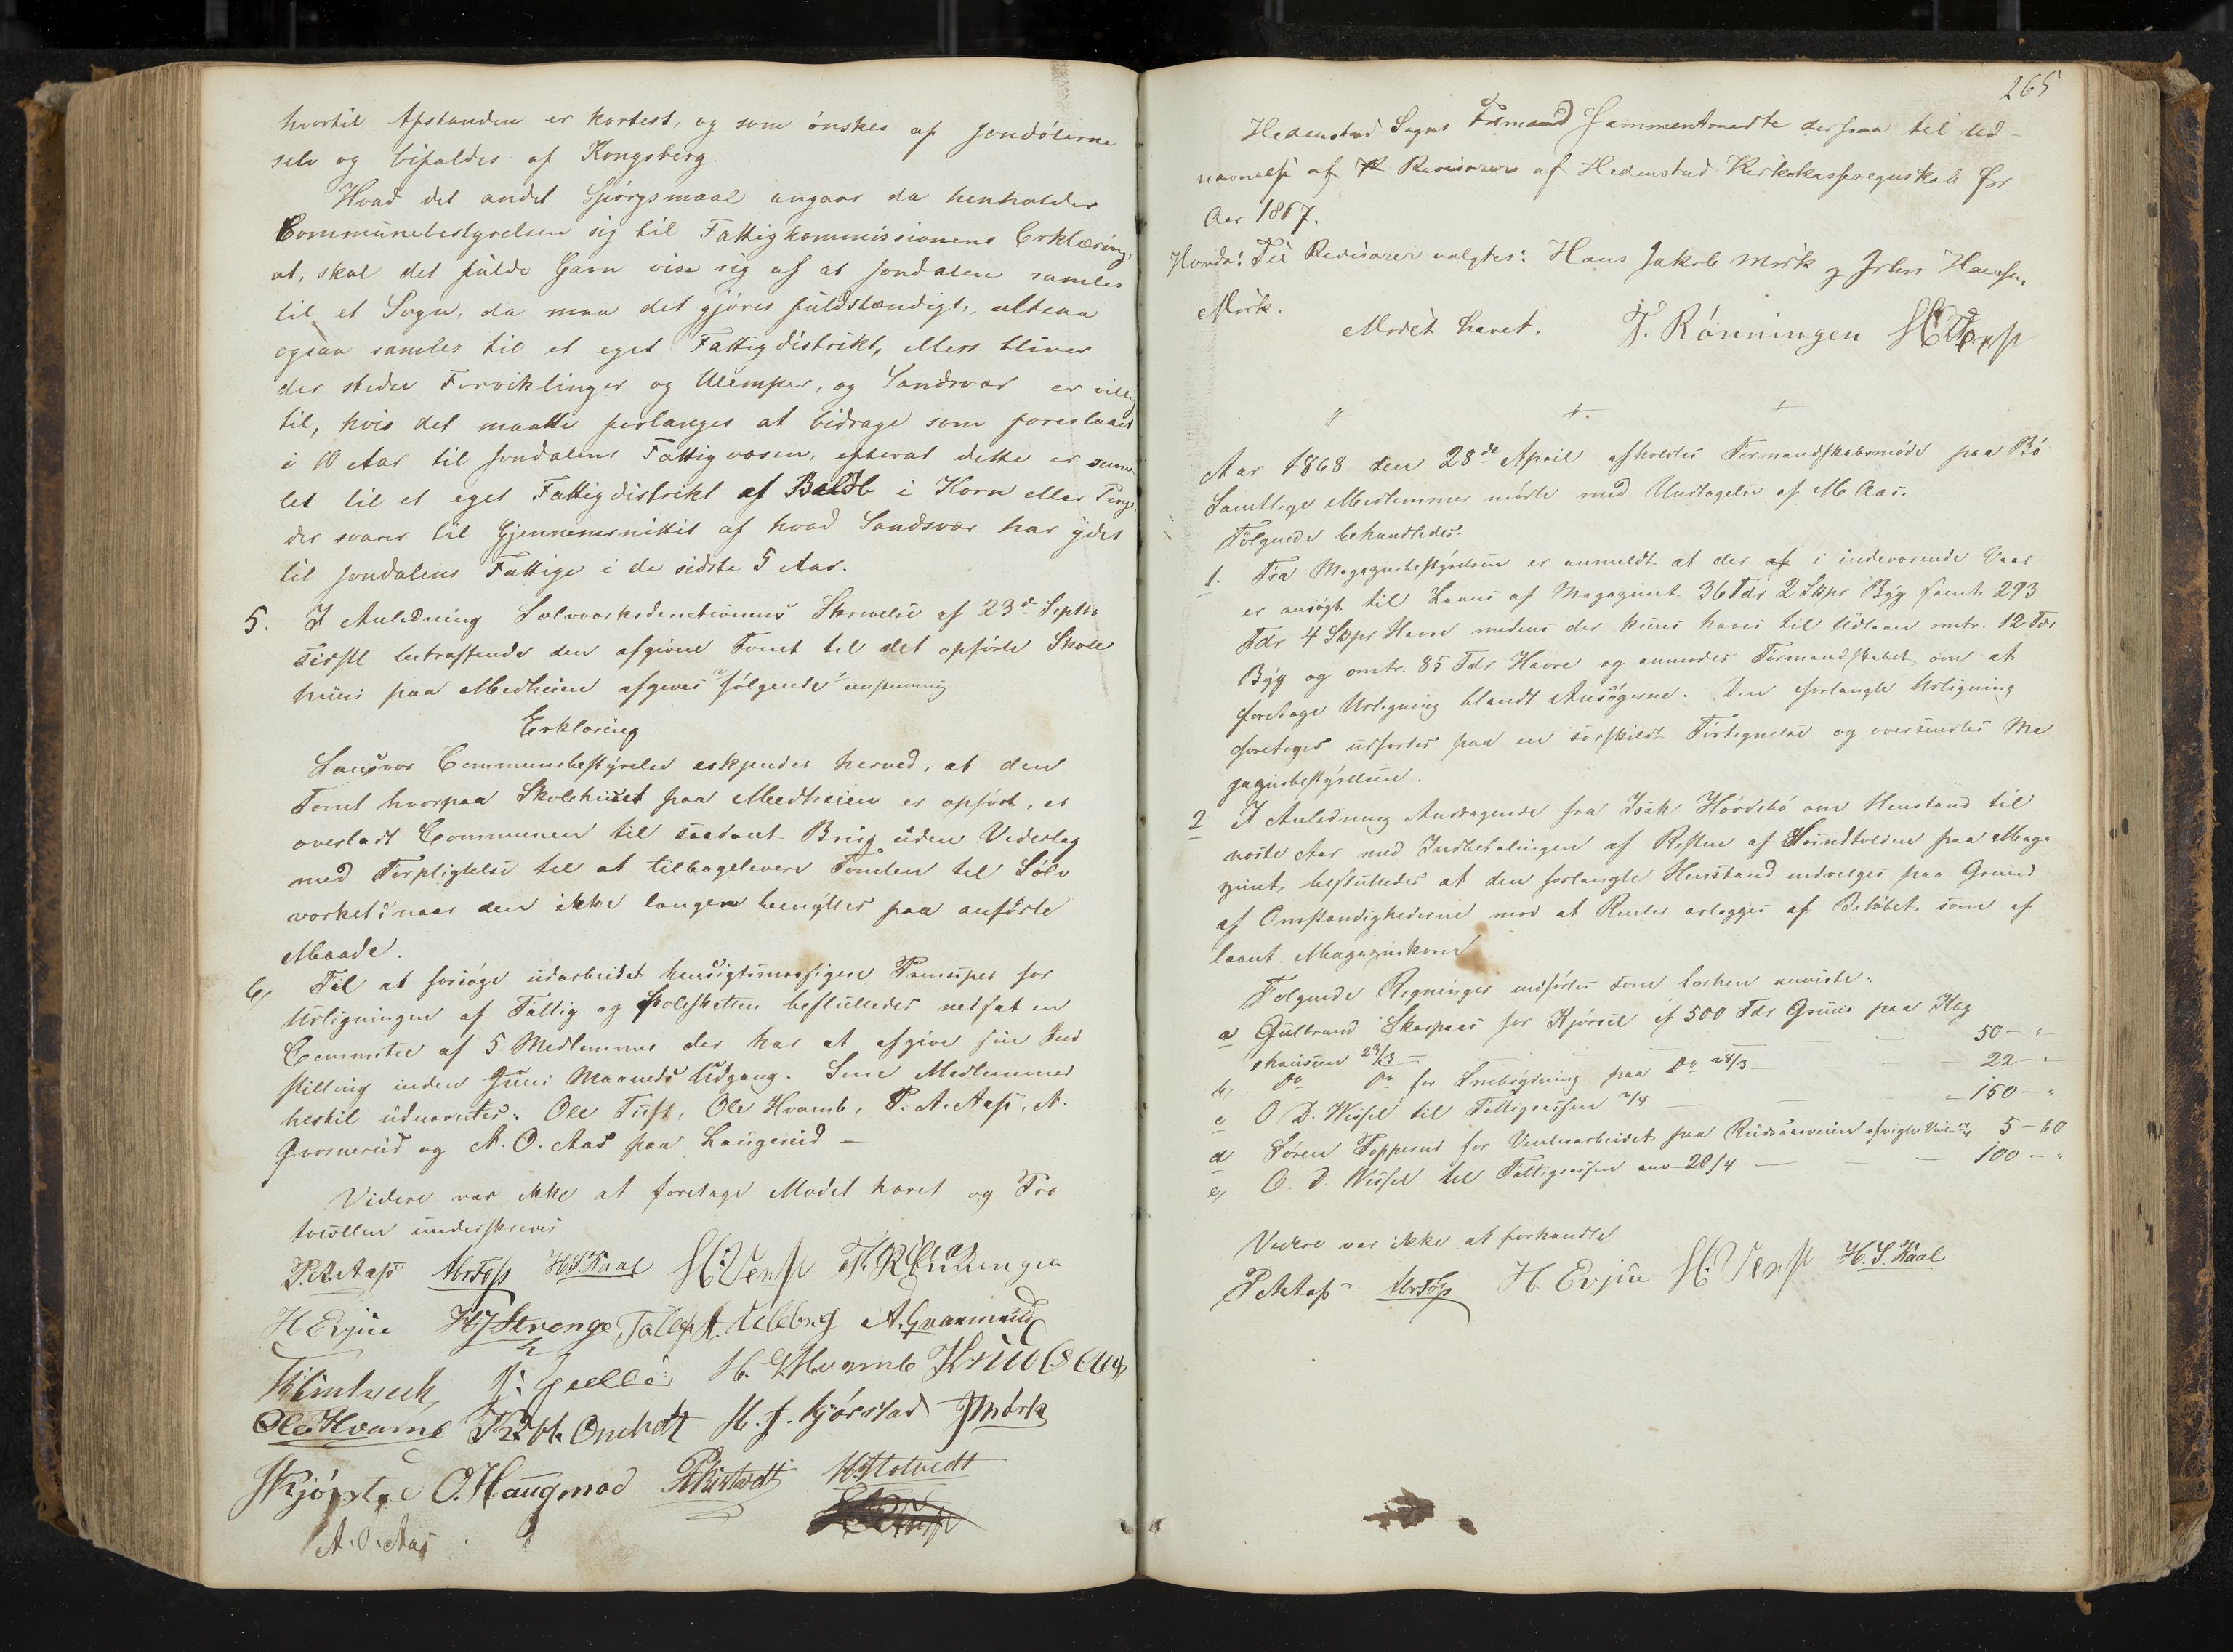 hvortil Afstanden er kortest, og som ønskes af Jondølerne
selv og bifaldes af Kongsberg.
Hvad det andet Spørgsmaal angaar da henholder
Communebestyrelsen sig til Fattigkommissionens Erklæring,
at, skal det fulde Gavn vise sig af at Jondalen samles
til et Sogn, da maa det gjøres fuldstændigt, altsaa
ogsaa samles til et eget Fattigdistrikt, ellers bliver
der steder Forviklinger og Ulemper, og Sandsvær er villig
til, hvis det maatte forlanges at bidrage som foreslaaet
i 10 Aar til Jondalens Fattigvæsen, efterat dette er sam
let til et eget Fattigdistrikt af Beløb i Korn eller Penge,
der svarer til Gjennemsnittet af hvad Sandsvær har ydet
til Jondalens Fattige i de sidste 5 Aar.
5. I Anledning Sølvværksdirectionens Skrivelse af 23de Septbr
betræffende den afgivne Tomt til det opførte Skole
huus paa Medheien afgives følgende
Erklæring
Sansvær Communebestyrelse erkjender herved, at den
Tomt hvorpaa Skolehuset paa Medheien er opført, er
overladt Communen til saadant Brug uden Vederlag
med Forpligtelse til at tilbagelevere Tomten til Sølv
værket naar den ikke længer benyttes paa anførte
Maade.
6, Til at forsøge udarbeidet hensigtsmæssigere Principer for
Udligningen af Fattig og Skoleskatten besluttedes nedsat en
Commitee af 5 Medlemmer der har at afgive sin Ind
stilling inden Juni Maaneds Udgang. Som Medlemmer
hertil udnævntes: Ole Tuft, Ole Hvamb, P. A. Aas, A.
Gvarnerud og A. O. Aas paa Laugerud –
Videre var ikke at foretage Mødet hævet og Pro
tocollen underskreves
P. A. Aas H.S. Kaal H. Venst T. Rønningen
H Evju HJ Strenge A. Gvarnerud
H. G. Hvamb
Ole Hvamb H. J. Kjørstad J Mørk
Kjørstad O. Haugmod
A. O. Aas
265
Hedenstad Sogns Formænd Sammentraadte derpaa til Ud-
nævnelse af Revisorer af Hedenstad Kirkekasseregnskab for
Aar 1867.
Til Revisorer valgtes: Hans Jakob Mørk og Hansen
Mørk.
Mødet hævet. T. Rønningen H. Venst
Aar 1868 den 28de April afholdtes Formandskabsmøde paa Bø
Samtlige Medlemmer mødte med Undtagelse af M. Aas.
Følgende behandledes:
1. Fra Magazinbestyrelsen er anmeldt at der af i indeværende Vaar
er ansøgt til Laans af Magazinet 36 Tdr 2 Skpr Byg samt 293
Tdr 4 Skpr Havre medens der kuns haves til Udlaan omtr. 12 Tdr
Byg og omtr. 85 Tdr Havre og anmodes Formandskabet om at
foretage Udligning blandt Ansøgerne. Den forlangte Udligning
foretoges udførtes paa en særskildt Fortegnelse og oversendtes Ma
gazinbestyrelsen.
2 I Anledning Andragende fra Isak Hørdebø om Henstand til
næste Aar med Indbetalingen af Resten af paa Maga
zinet, besluttedes at den forlangte Henstand indvilges paa Grund
af Omstændighederne mod at Renter erlægges af Beløbet som af
laant Magazinkorn
Følgende Regninger indførtes som anviste:
a Gulbrand Skarpaas for Kjørsel af 500 Tdr Gruus paa Kbg
chauseen 23/3 – 50 – "
b, Do Do for Snebrydning paa Do 28/3 22 – "
c O. D. Wessel til Fattigcassen 2/4 150 – "
d Søren Topperud for Veiarbeidet paa 5 – 60
e, O. D. Wessel til Fattigcassen anv 20/4 100 – "
Videre var ikke at forhandle
P A Aas H. Evju H. Venst H. S. Kaal